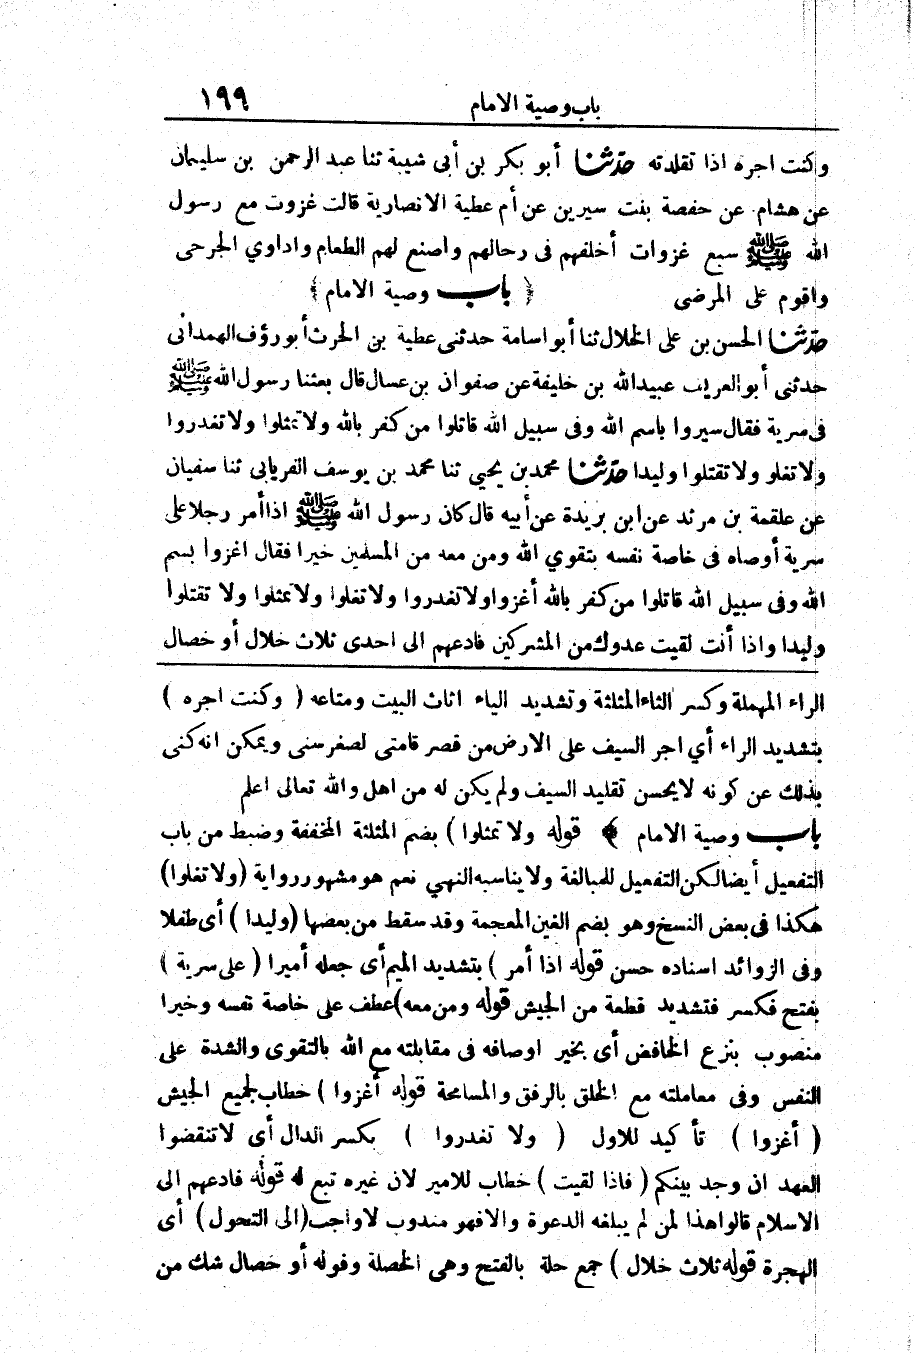 باب وصية الامام ١٩٩
وكنت اجره اذا تقلدته حدثنا أبو بكر بن أبى شيبة ثنا عبد الرحمن بن سليمان
عن هشام عن حفصة بنت سيرين عن أم عطية الانصارية قالت غزوت مع رسول
الله ﷺ سبع غزوات أخلفهم فى رحالهم واصنع لهم الطعام واداوي الجرحى
واقوم على المرضى ﴿ باب وصية الامام ﴾
حدثنا الحسن بن على الخلال ثنا أبو اسامة حدثنى عطية بن الحرث أبو رؤف الهمدانى
حدثنى أبو العريف عبيدالله بن خليفة عن صفوان بن عسال قال بعثنا رسول الله ﷺ
فى سرية فقال سيروا باسم الله وفى سبيل الله قاتلوا من كفر بالله ولا تمثلوا ولا تغدروا
ولا تغلو ولا تقتلوا وليدا حدثنا محمد بن يحيي ثنا محمد بن يوسف الفريابى ثنا سفيان
عن علقمة بن مرثد عن ابن بريدة عن أبيه قال كان رسول الله ﷺ اذا أمر رجلا على
سرية أوصاه فى خاصة نفسه بتقوي الله ومن معه من المسلمين خيرا فقال اغزوا بسم
الله وفى سبيل الله قاتلوا من كفر بالله أغزوا ولا تغدروا ولا تغلوا ولا تمثلوا ولا تقتلوا
وليدا واذا أنت لقيت عدوك من المشركين فادعهم الى احدى ثلاث خلال أو خصال
الراء المهملة وكسر الثاء المثلثة وتشديد الياء اثاث البيت ومتاعه ( وكنت اجره )
بتشديد الراء أي اجر السيف على الارض من قصر قامتى لصغر سنى ويمكن انه كنى
بذلك عن كونه لا يحسن تقليد السيف ولم يكن له من اهل والله تعالى اعلم
باب وصية الامام ﴾ قوله ولا تمثلوا ) بضم المثلثة المخففة وضبط من باب
التفعيل أيضا لكن التفعيل للمبالغة ولا يناسبه النهي نعم هو مشهور رواية (ولا تغلوا)
هكذا فى بعض النسخ وهو بضم الغين المعجمة وقد سقط من بعضها (وليدا ) أى طفلا
وفى الزوائد اسناده حسن قوله اذا أمر ) بتشديد الميم أى جعله أميرا ( على سرية )
بفتح فكسر فتشديد قطعة من الجيش قوله ومن معه) عطف على خاصة نفسه وخيرا
منصوب بنزع الخافض أى بخير اوصافه فى مقابلته مع الله بالتقوى والشدة على
النفس وفى معاملته مع الخلق بالرفق والمسامحة قوله أغزوا ) خطاب لجميع الجيش
( أغزوا ) تأكيد للاول ( ولا تغدروا ) بكسر الدال أى لا تنقضوا
العهد ان وجد بينكم ( فاذا لقيت ) خطاب للامير لان غيره تبع له قوله فادعهم الى
الاسلام قالوا هذا لمن لم يبلغه الدعوة والا فهو مندوب لا واجب (الى التحول ) أى
الهجرة قوله ثلاث خلال ) جمع حلة بالفتح وهى الخصلة وقوله أو خصال شك من